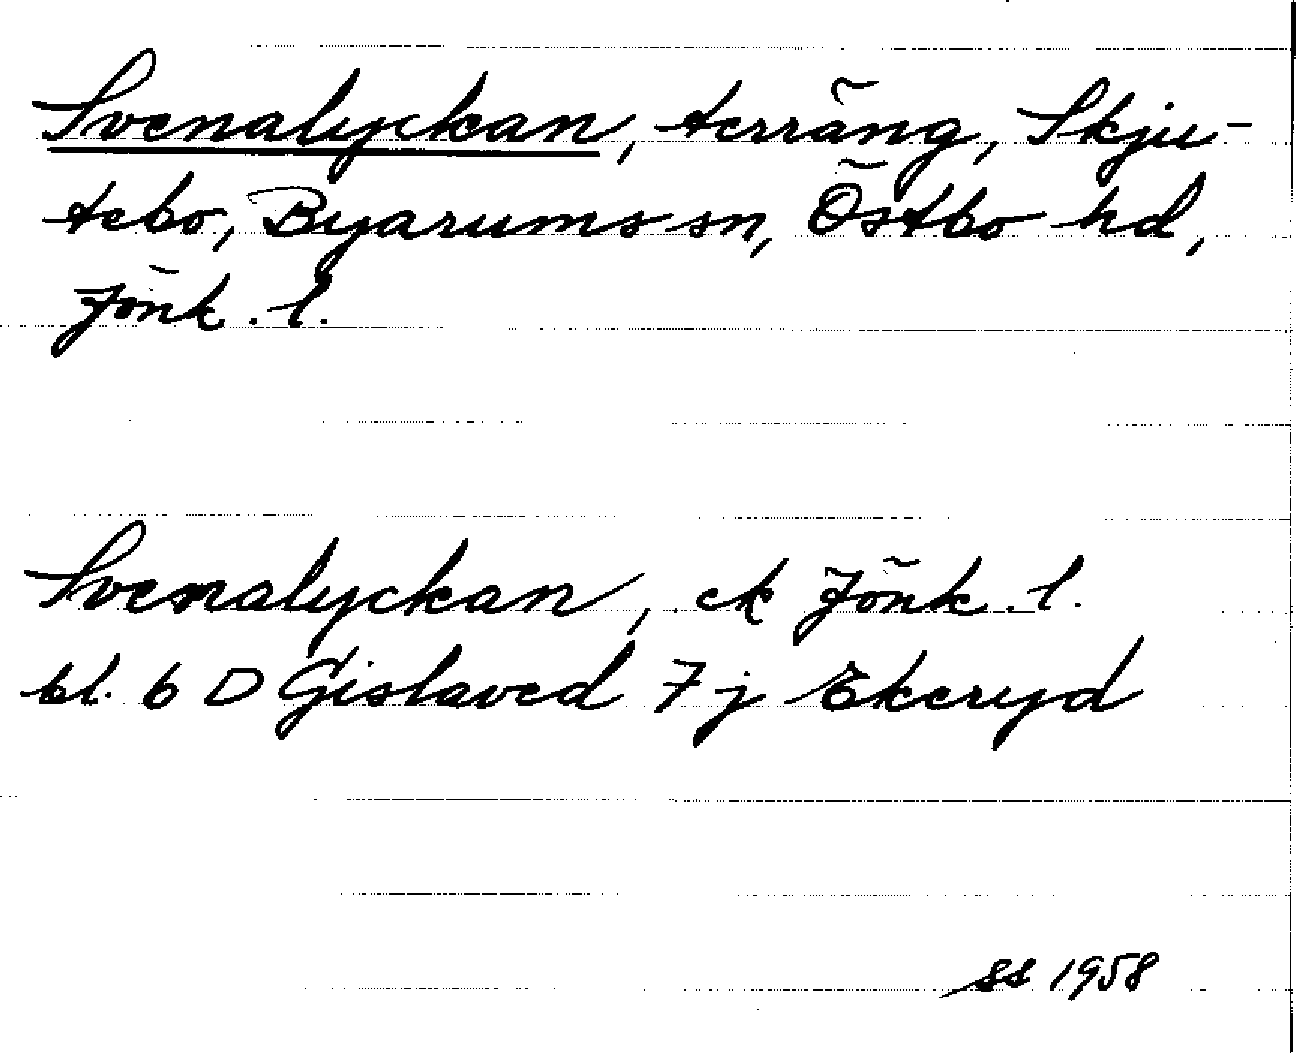 Svenalyckan, terräng, Skju-
tebo, Byarums sn, Östbo hd,
Jönk. l.
Svenalyckan, ek Jönk. l.
bl. 6 D Gislaved 7 j Ekeryd
SS 1958